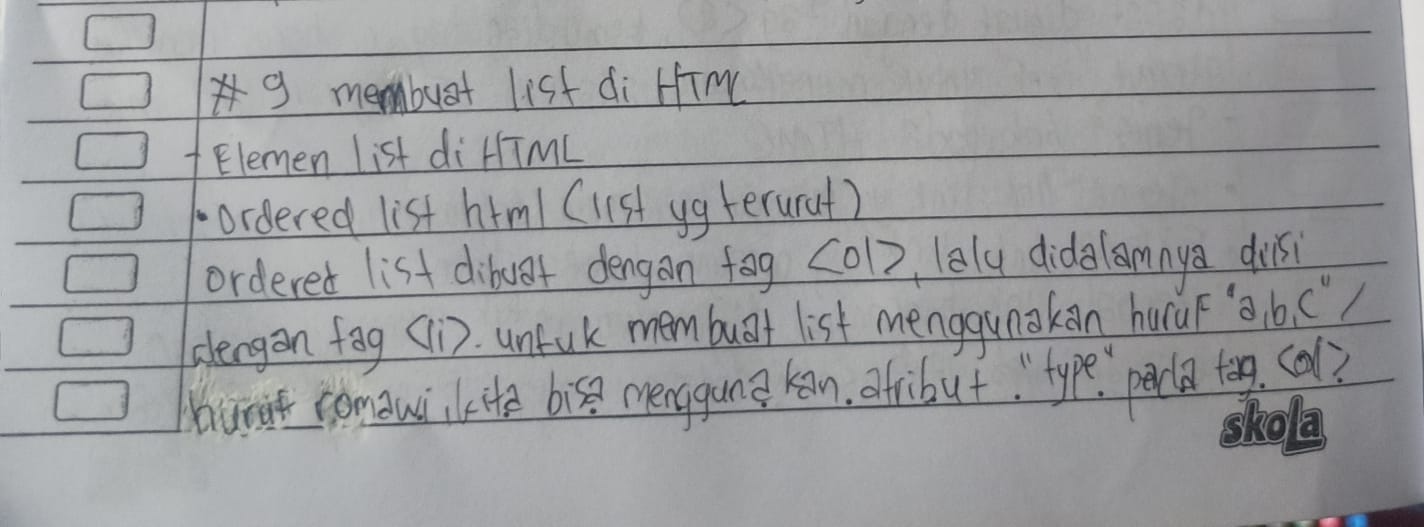 # 9 membuat list di HTML
+ Elemen list di HTML
• ordered list html (list yg terurut)
orderet list dibuat dengan tag <ol>, lalu didalamnya diisi
dengan tag <li>. untuk membuat list menggunakan huruf "a,b,c" /
huruf romawi, kita bisa menggunakan. atribut. "type" pada tag. <ol>
skola